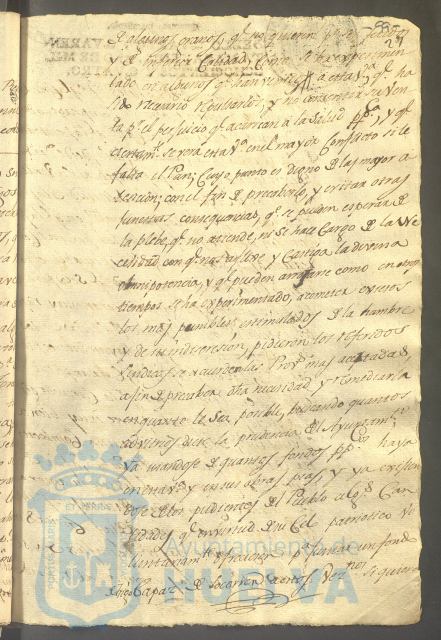 de algunos granos, q.e no quieren
y de inferior Calidad, como se ha experimen
tado en algunos q.e han venido a esta v.a q.e ha
sido necesario repulsarlos, y no consentir su ven
ta p.r el perjuicio q.e acarrean a la salud pp.ca y q.e
ciertam.te se verá esta V.a en el mayor Conflicto si le
falta el Pan; Cuyo punto es digno de las mayor a
tencion; con el fin de precaverlo, y evitar otras
funestas consequencias, q.e se pueden esperar de
la plebe, q.e no atiende, ni se hace Cargo de la Ne
cesidad con q.e nos aflixe y Castiga la divina
Omnipotencia, y q.e pueden arrojarse como en otros
tiempos se ha experimentado, a cometer excesos
los mas punibles estimulados de la hambre
y de su indiscrecion, pidieron los referidos
Sindicos se acuerden las Prov.s mas acertadas,
a fin de precaber dha necesidad y remediarla
en quanto le sea posible, buscando quantos
adbitrios dicte la prudencia del Ayuntam.to
ya usandose de quantos fondos pp.cos haya
en esta v.a y en sus obras pias, y ya
de los pudientes del Pueblo alg.s Can
tidades q.e en virtud de su Cel patriotico vo
luntariam.te ofrecieren, p.a formar un fondo
Capaz de Socorrer a estos Vez.nos siquiera
Ayuntamiento de
HUELVA
PORTUS MARIS
ET TERRAE